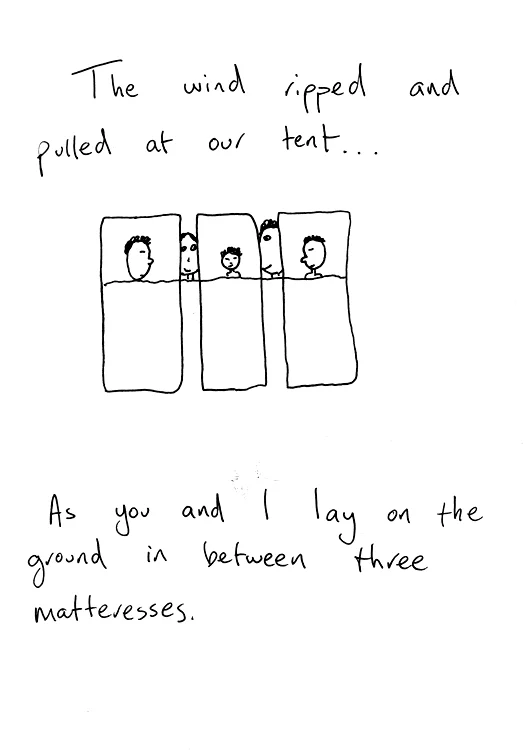 The wind ripped and
pulled at our tent...
As you and I lay on the
ground in between three
matteresses.